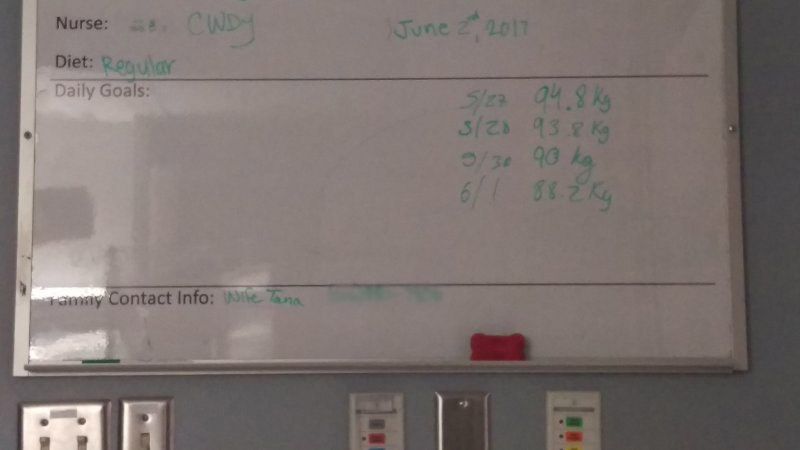 Nurse: CWDY June 2nd, 2017
Diet: Regular
Daily Goals:
5/27 94.8 Kg
5/28 93.8 Kg
5/30 90 kg
6/1 88.2 Kg
Family Contact Info: Wife Tana